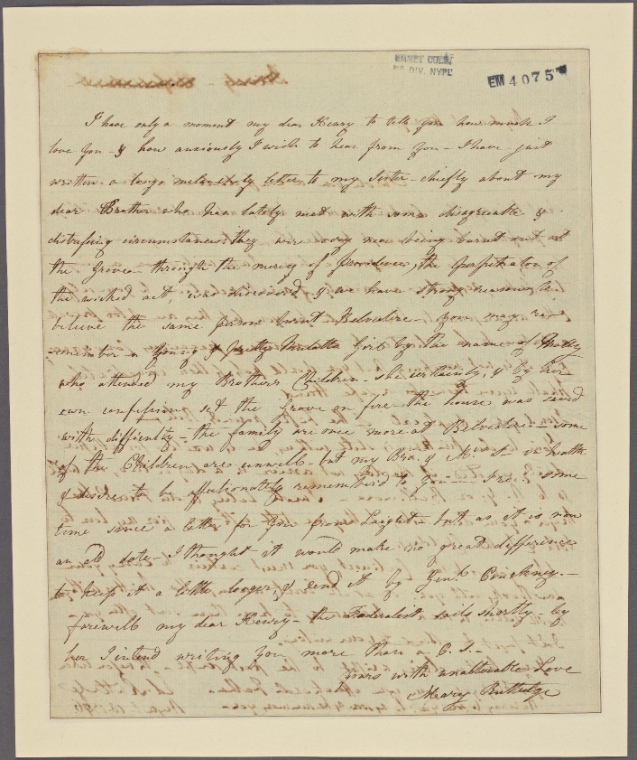 EMMET COLL.
MS. DIV. NYPL
EM 4075
I have only a moment my dear Henry to tell you how much I
love you & how anxiously I wish to hear from you - I have just
written a long melancholy letter to my Sister - chiefly about my
dear Brother who has lately met with some disagreeable &
distressing circumstances they were very near being burnt out at
the Grove - through the mercy of Providence, the perpetrator of
the wicked act, was discovered & we have strong reasons to
believe the same person burnt Belvidere - You may re-
member a young & pretty Mulatto Girl by the name of
who attended my Brothers Children - she certainly, & by her
own confession set the Grove on fire - the house was saved
with difficulty - the family are once more at Belvidere - some
of the Children are unwell - but my Bro. & in health
& desire to be affectionately remembered to you - I some
time since a letter for you from but as it is now
an old date I thought it would make no great difference
to keep it a little longer, & send it by Genl. Pinckney. -
farewell my dear Henry - the Federalist sails shortly - by
her I intend writing you more than a
yours with unalterable Love
Mary Rutledge